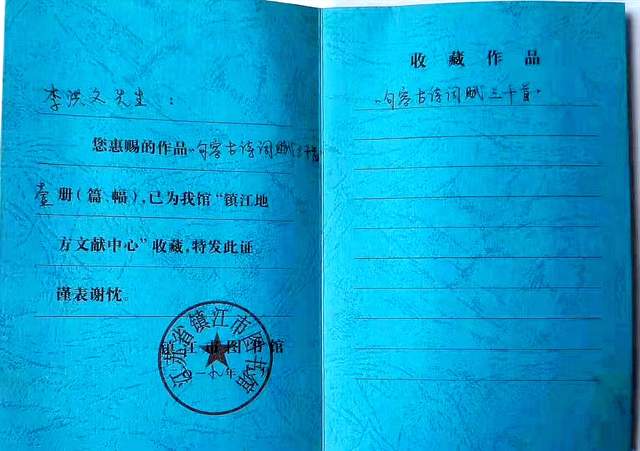 李洪文先生：
您惠赐的作品“句容古诗词赋三十首”
壹册（篇、幅），已为我馆“镇江地
方文献中心”收藏，特发此证。
谨表谢忱。
镇江市图书馆
江苏省镇江市图书馆
收藏作品
“句容古诗词赋三十首”